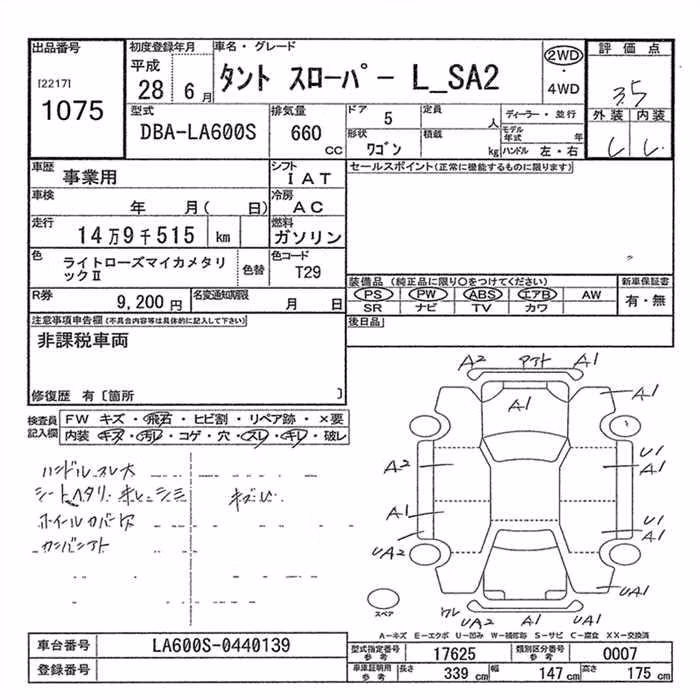 出品番号 初度登録年月 車名・グレード 評価点
[2217] 平成 2WD
1075 28 6月 タント スローパー L_SA2 ・ 3.5
4WD
型式 排気量 ドア 5 定員 人 ディーラー・並行 外装 内装
DBA-LA600S 660 CC 形状 ワゴン 積載 kg モデル年式 年 ハンドル 左・右
車歴 事業用 シフト IAT セールスポイント(正常に機能するものに限ります)
車検 年 月( 日) 冷房 AC
走行 14万9千515 km 燃料 ガソリン
色 ライトローズマイカメタリックⅡ 色替 色コード T29
装備品 (純正品に限り○をつけてください) 新車保証書
PS PW ABS エアB AW 有・無
SR ナビ TV カワ
R券 9,200円 名変通知期限 月 日
後日品
注意事項申告欄(不具合内容等は具体的に記入して下さい)
非課税車両
修復歴 有〔箇所 〕
検査員記入欄 FW キズ・飛石・ヒビ割・リペア跡・×要
内装・キズ・汚レ・コゲ・穴・スレ・キレ・破レ
ハンドルスレ大
シートヘタリ
ホイールカバー欠
A2 A1
A1 A1
U1
A2 A1
A1 U1
A1
UA2
UA1
スペア
ワレ UA2 A1 UA1
A-キズ E-エクボ U-凹み W-補修跡 S-サビ C-腐食 XX-交換済
車台番号 LA600S-0440139
登録番号
型式指定番号 参考 17625 類別区分番号 参考 0007
車庫証明用 参考 長さ 339 cm 幅 147 cm 高さ 175 cm